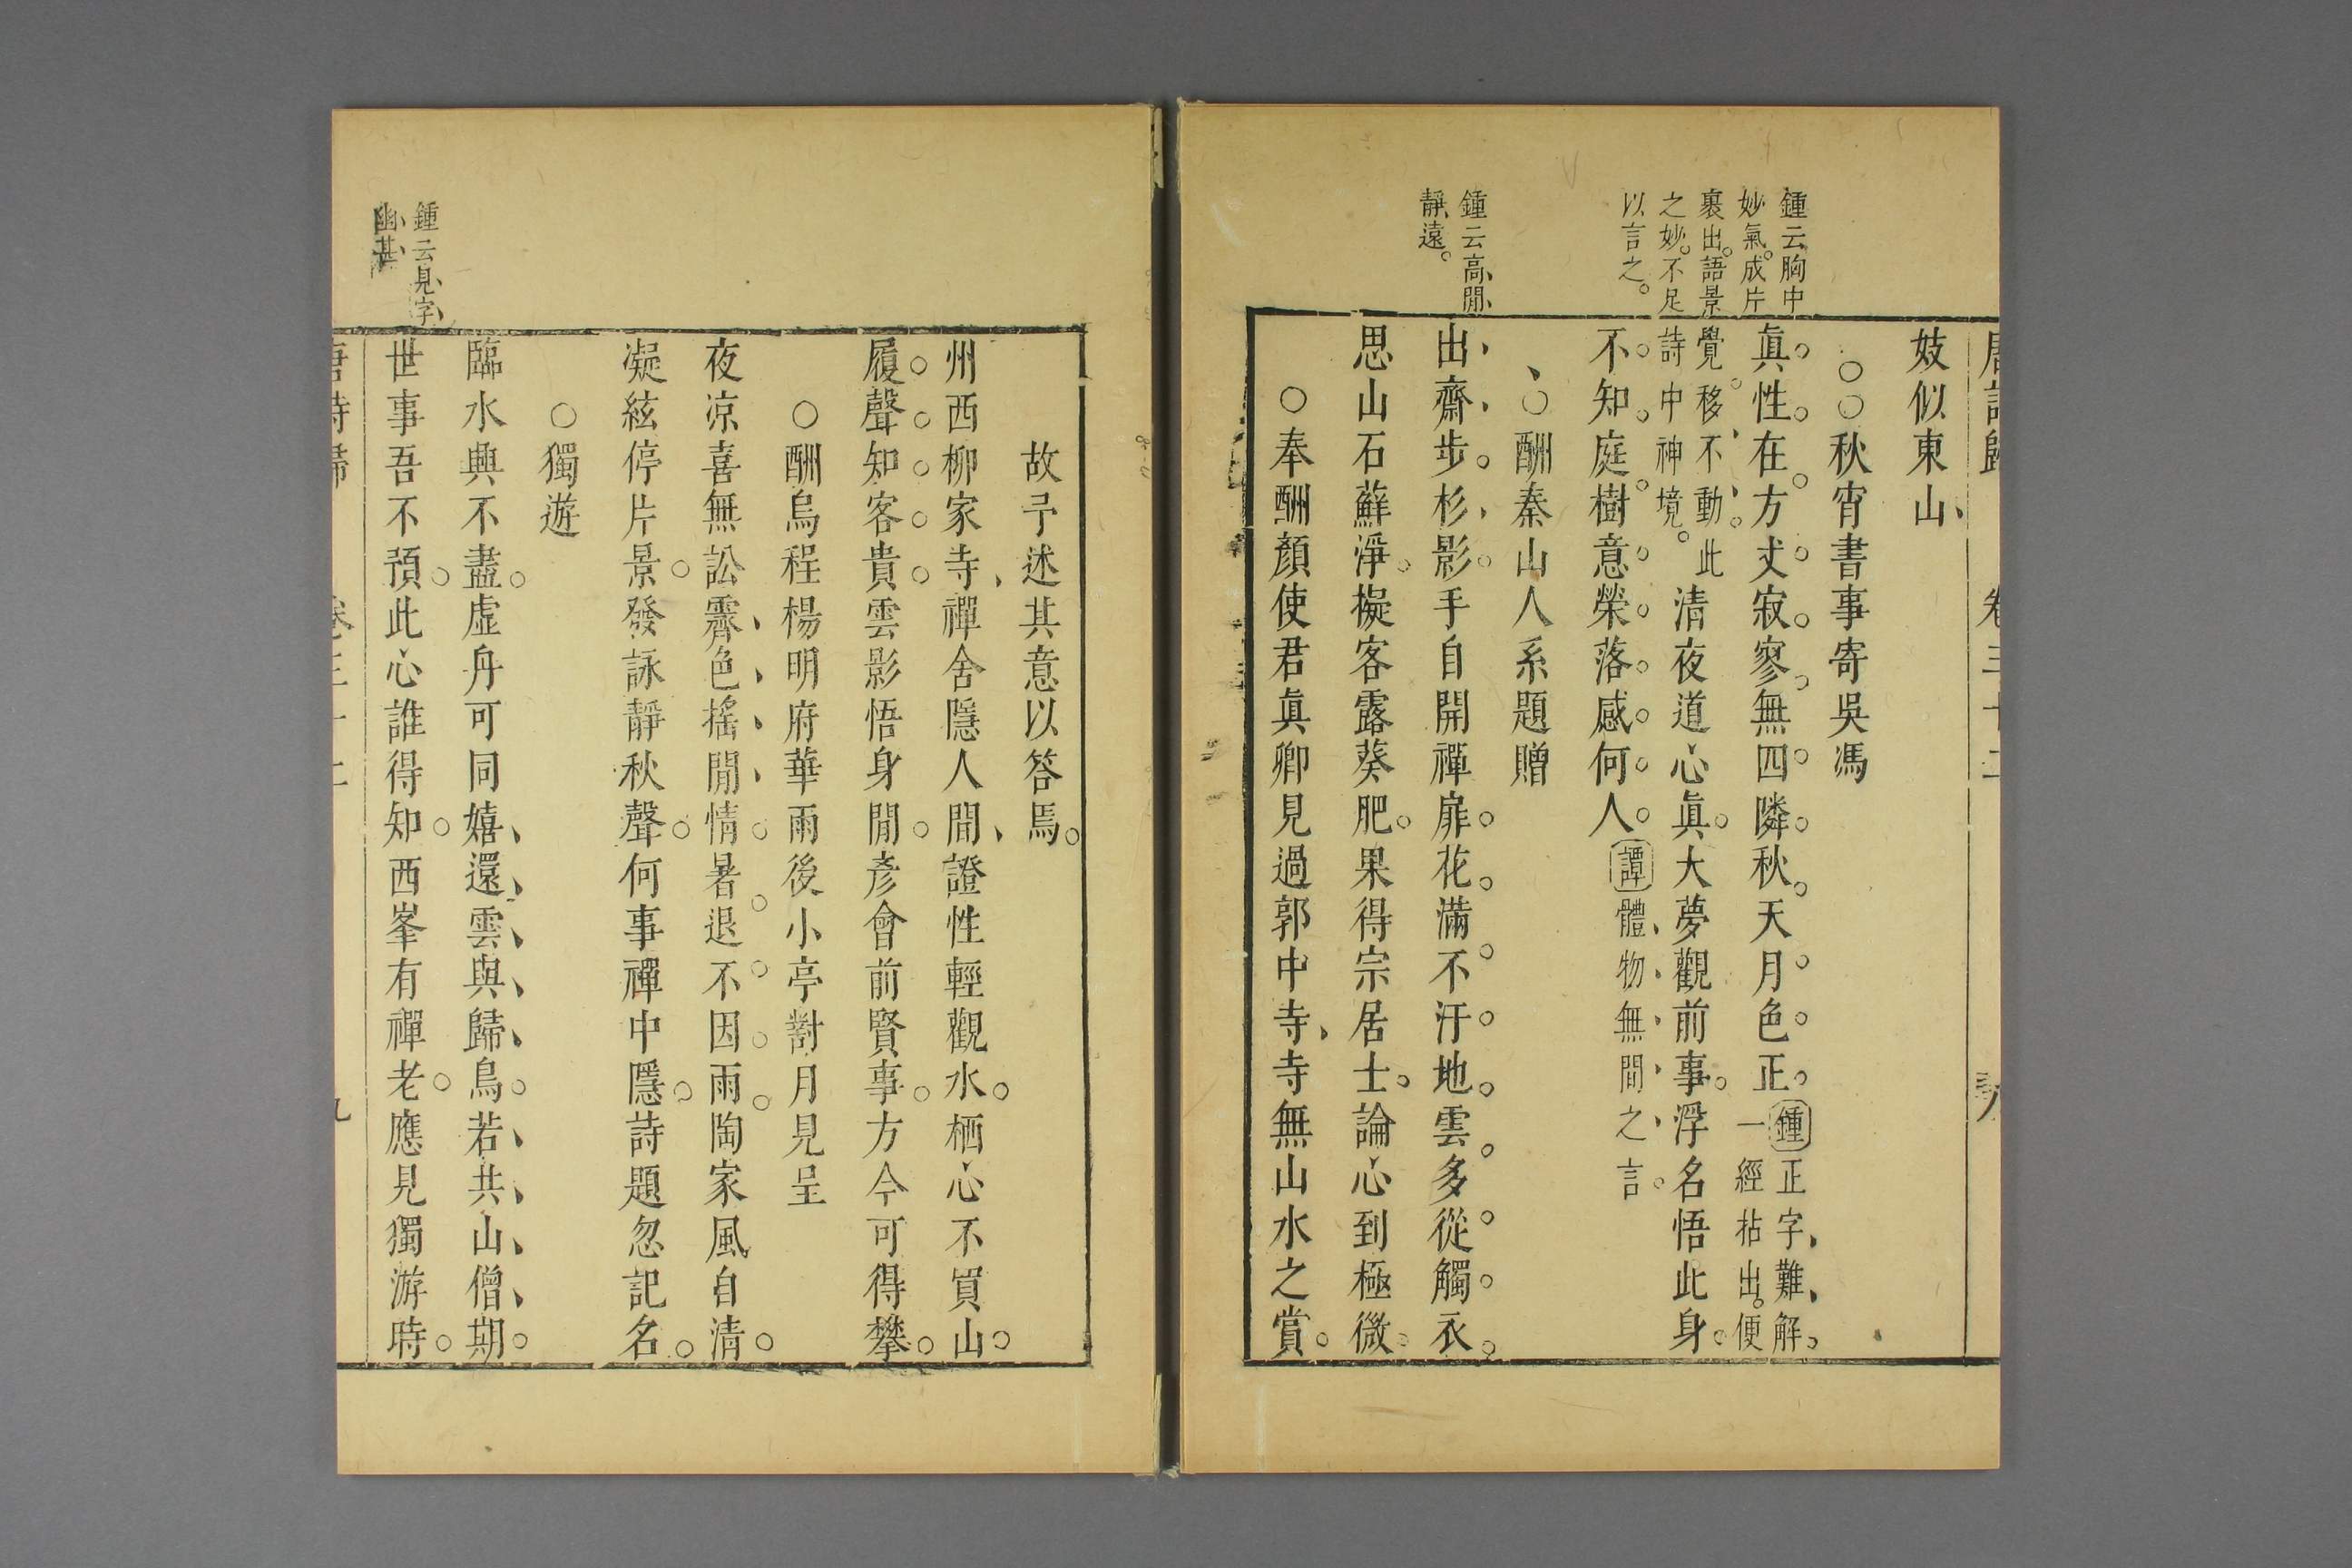 妓似東山
○○秋宵書事寄吳馮
真性在方丈寂寥無四隣秋天月色正鍾正字難解
一經拈出便
覺移不動此
詩中神境
清夜道心真大夢觀前事浮名悟此身
不知庭樹意榮落感何人譚體物無間之言
○酬秦山人系題贈
出齋步杉影手自開禪扉花滿不汙地雲多從觸衣
思山石蘚淨擬客露葵肥果得宗居士論心到極微
○奉酬顏使君真卿見過郭中寺寺無山水之賞
鍾云胸中
妙氣成片
裹出語景
之妙不足
以言之
鍾云高閒
靜遠
故予述其意以答焉
州西柳家寺禪舍隱人間證性輕觀水栖心不買山
履聲知客貴雲影悟身閒彥會前賢事方今可得攀
○酬烏程楊明府華雨後小亭對月見呈
夜凉喜無訟霽色搖閒情暑退不因雨陶家風自清
凝絃停片景發詠靜秋聲何事禪中隱詩題忽記名
○獨遊
臨水興不盡虛舟可同嬉還雲與歸鳥若共山僧期
世事吾不預此心誰得知西峯有禪老應見獨游時
鍾云見字
幽甚